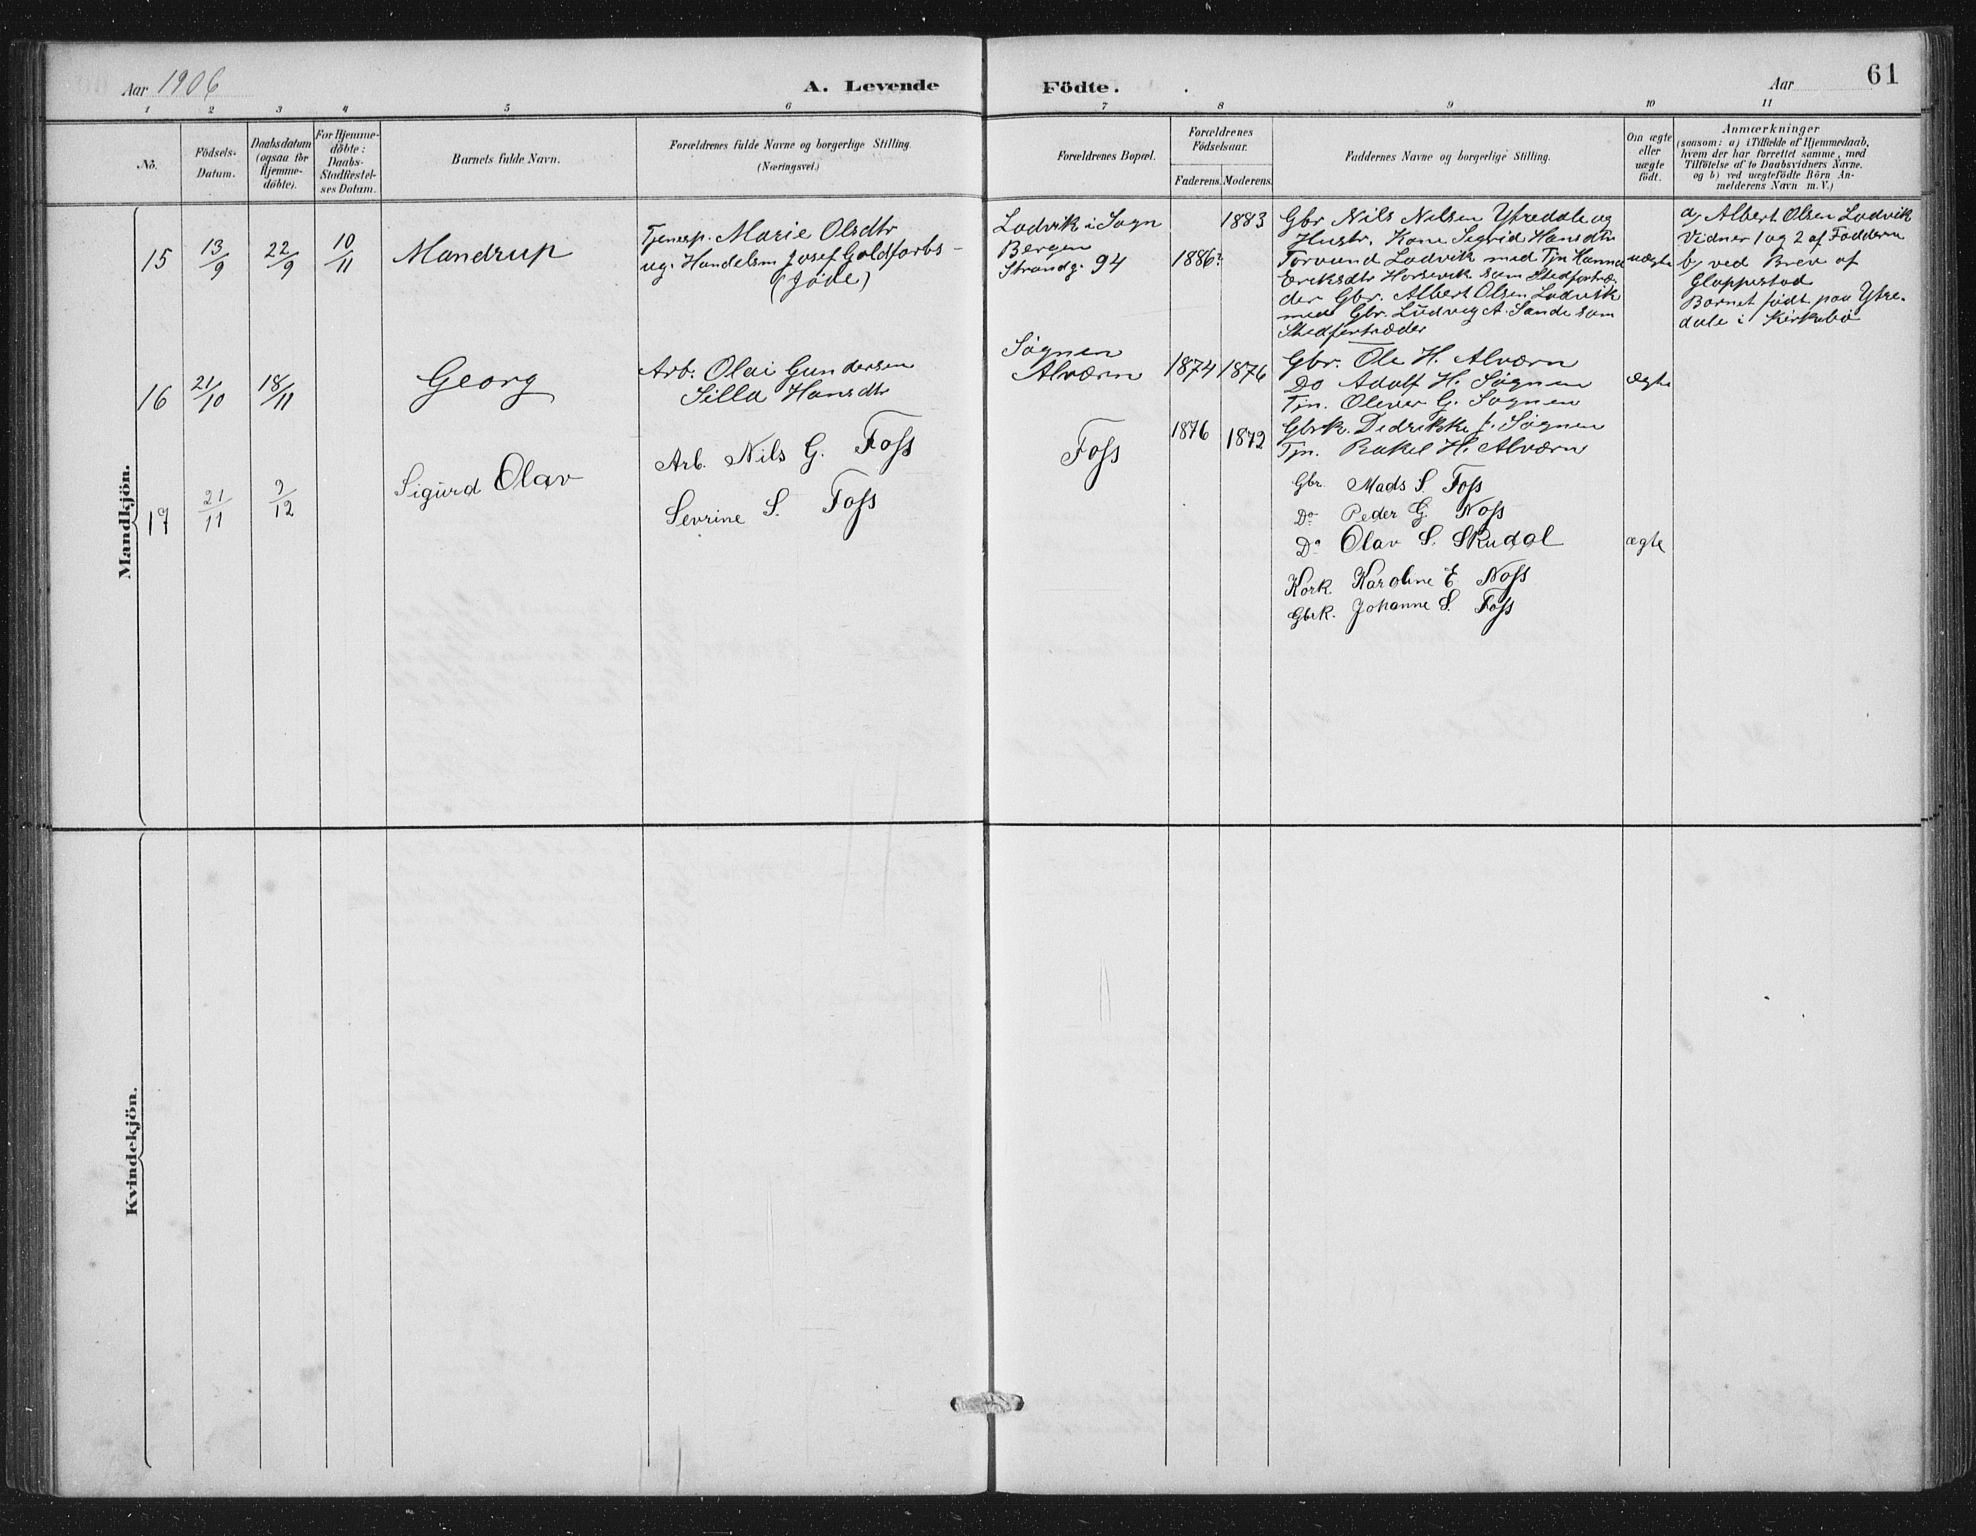 Aar 1906
A. Levende Födte.
Aar
61
1 2 3 4 5 6 7 8 9 10 11
No.
Födsels-Datum.
Daabsdatum (ogsaa for Hjemme-döbte).
For Hjemme-döbte: Daabs-Stadfæstel-ses Datum.
Barnets fulde Navn.
Forældrenes fulde Navne og borgerlige Stilling.
(Næringsvei.)
Forældrenes Bopæl.
Forældrenes Födselsaar.
Faderens. Moderens.
Faddernes Navne og borgerlige Stilling.
Om ægte eller uægte födt.
Anmærkninger
(saasom: a) i Tilfælde af Hjemmedaab,
hvem der har forrettet samme, med
Tilföielse af to Daabsvidners Navne,
og b) ved uægtefödte Börn An-
melderens Navn m. V.)
Mandkjön.
15 13/9 22/9 10/11 Mandrup
Tjenesp. Marie Olsdtr
ug. Handelsm Josef Goldfarbs-
(Jøde)
Ladvik i Sogn
Bergen
Strandg. 94
1886? 1883
Gbr Nils Nilsen Ytredale og
Hustr. Kone Sigrid Hansdtr
Torvund Ladvik med Tjn Hanna
Eriksdtr Horsevik som Stedfortræ-
der Gbr. Albert Olsen Ladvik
med Gbr. Ludvig A. Sande som
Stedfortræder
uægte
a, Albert Olsen Ladvik
Vidner 1 og 2 af Faddern
b, ved Brev af
Gloppestad
Barnet født paa Ytre-
dale i Kirkebø
16 21/10 18/11 Georg
Arb. Olai Gundersen
Silla Hansdtr
Søgnen
Alværn
1874 1876
Gbr. Ole H. Alværn
Do Adolf H. Søgnen
Tjn. Oliver G. Søgnen
Gbrk. Didrikke J. Søgnen
Tjn. Rakel H. Alværn
ægte
17 21/11 9/12 Sigurd Olav
Arb. Nils G. Foss
Sevrine S. Foss
Foss
1876 1872
Gbr. Mads S. Foss
Do Peder G. Noss
Do Olav S. Skudal
Kark. Karoline E. Noss
Gbrk. Johanne S. Foss
ægte
Kvindekjön.